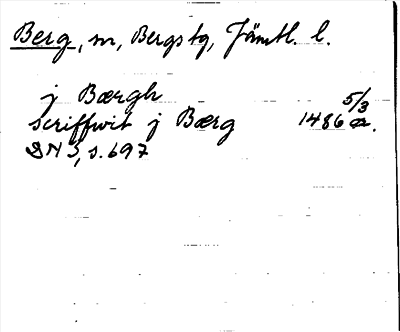 Berg, sn, Bergs tg, Jämtl. l.
j Bærgh
scriffwit j Bærg 1486 5/3.
DN 3, s. 697